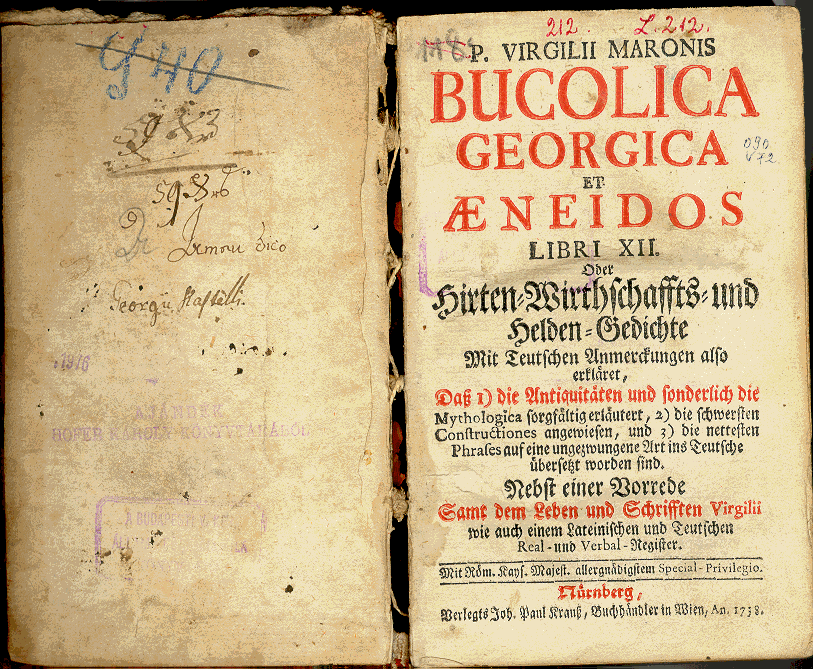 G 40
Georgii
1976
AJÁNDÉK
HOFER KÁROLY KÖNYVTÁRÁBÓL
A BUDAPESTI
212. L. 212.
118
P. VIRGILII MARONIS
BUCOLICA
GEORGICA
ET
ÆNEIDOS
LIBRI XII.
Oder
Hirten-Wirthschaffts- und
Helden-Gedichte
Mit Teutschen Anmerckungen also
erkläret,
Daß 1) die Antiquitäten und sonderlich die
Mythologica sorgfältig erläutert, 2) die schwersten
Constructiones angewiesen, und 3) die nettesten
Phrases auf eine ungezwungene Art ins Teutsche
übersetzt worden sind.
Nebst einer Vorrede
Samt dem Leben und Schrifften Virgilii
wie auch einem Lateinischen und Teutschen
Real- und Verbal-Register.
Mit Röm. Kays. Majest. allergnädigstem Special-Privilegio.
Nürnberg,
Verlegts Joh. Paul Krauß, Buchhändler in Wien, An. 1738.
090
V72